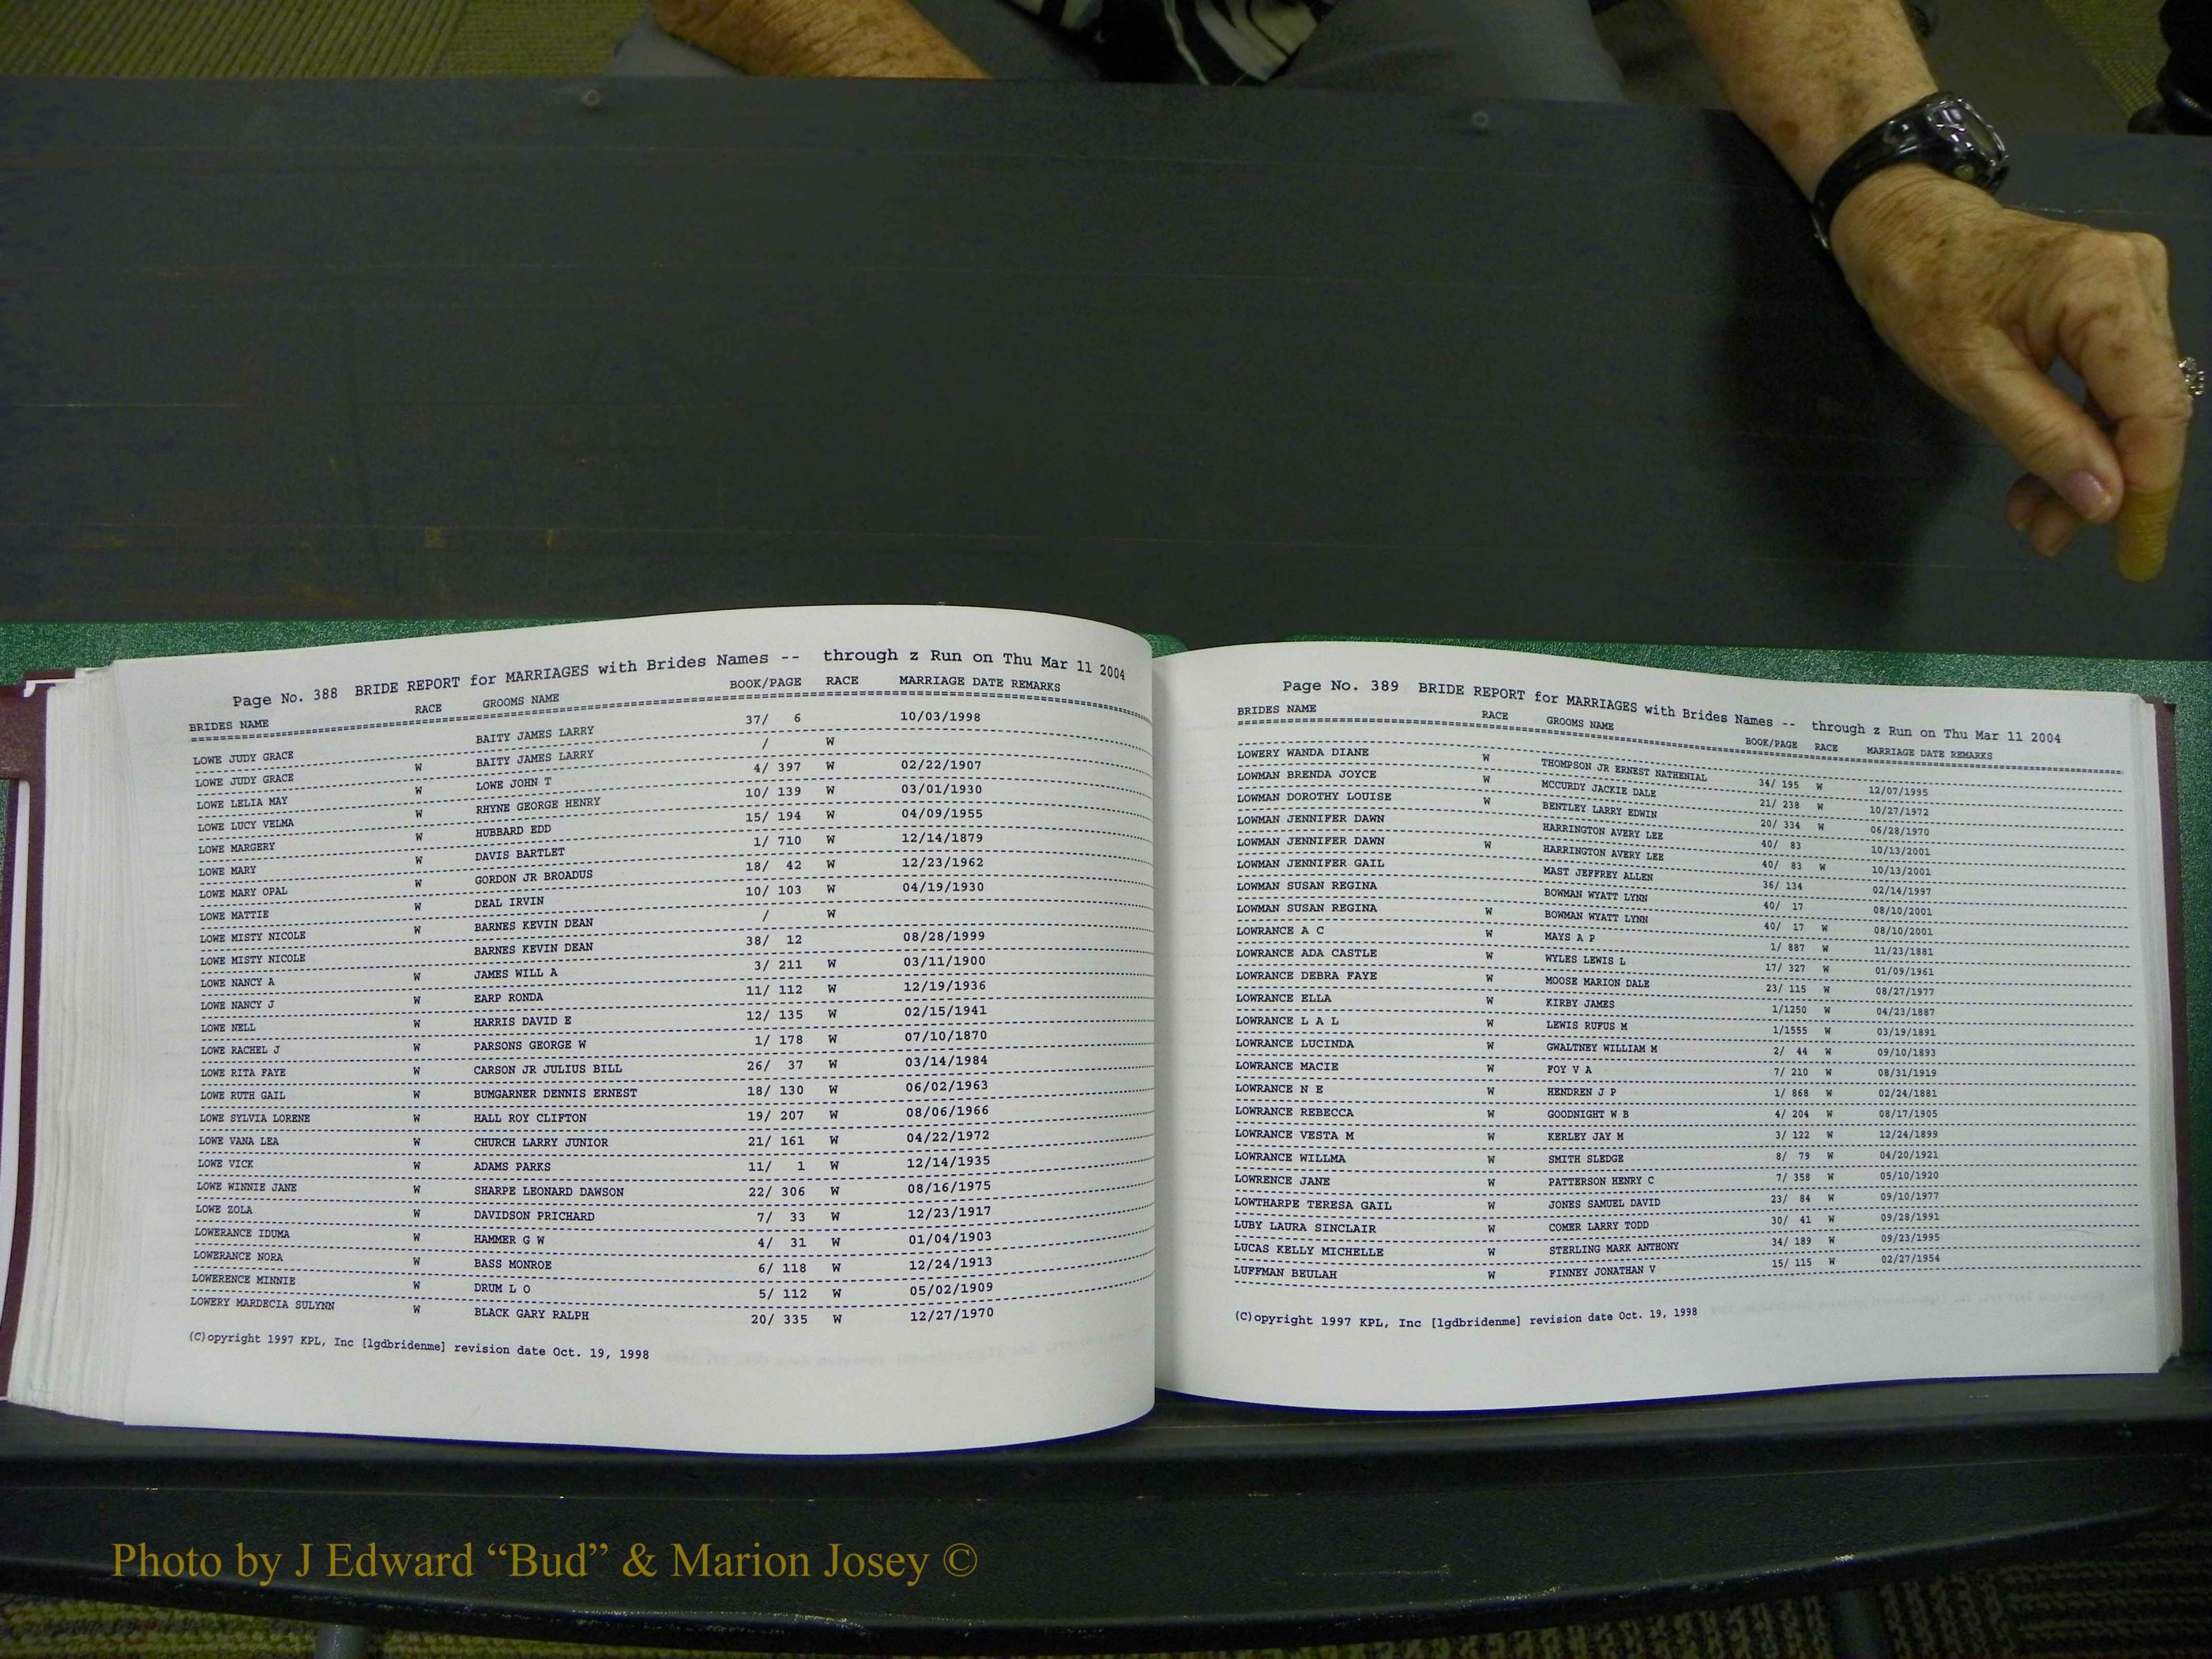 Page No. 388 BRIDE REPORT for MARRIAGES with Brides Names -- through z Run on Thu Mar 11 2004
BRIDES NAME RACE GROOMS NAME BOOK/PAGE RACE MARRIAGE DATE REMARKS
LOWE JUDY GRACE BAITY JAMES LARRY 37/ 6 10/03/1998
LOWE JUDY GRACE W BAITY JAMES LARRY / W
LOWE LELIA MAY W LOWE JOHN T 4/ 397 W 02/22/1907
LOWE LUCY VELMA W RHYNE GEORGE HENRY 10/ 139 W 03/01/1930
LOWE MARGERY W HUBBARD EDD 15/ 194 W 04/09/1955
LOWE MARY W DAVIS BARTLET 1/ 710 W 12/14/1879
LOWE MARY OPAL W GORDON JR BROADUS 18/ 42 W 12/23/1962
LOWE MATTIE W DEAL IRVIN 10/ 103 W 04/19/1930
LOWE MISTY NICOLE W BARNES KEVIN DEAN / W
LOWE MISTY NICOLE BARNES KEVIN DEAN 38/ 12 08/28/1999
LOWE NANCY A W JAMES WILL A 3/ 211 W 03/11/1900
LOWE NANCY J W EARP RONDA 11/ 112 W 12/19/1936
LOWE NELL W HARRIS DAVID E 12/ 135 W 02/15/1941
LOWE RACHEL J W PARSONS GEORGE W 1/ 178 W 07/10/1870
LOWE RITA FAYE W CARSON JR JULIUS BILL 26/ 37 W 03/14/1984
LOWE RUTH GAIL W BUMGARNER DENNIS ERNEST 18/ 130 W 06/02/1963
LOWE SYLVIA LORENE W HALL ROY CLIFTON 19/ 207 W 08/06/1966
LOWE VANA LEA W CHURCH LARRY JUNIOR 21/ 161 W 04/22/1972
LOWE VICK W ADAMS PARKS 11/ 1 W 12/14/1935
LOWE WINNIE JANE W SHARPE LEONARD DAWSON 22/ 306 W 08/16/1975
LOWE ZOLA W DAVIDSON PRICHARD 7/ 33 W 12/23/1917
LOWERANCE IDUMA W HAMMER G W 4/ 31 W 01/04/1903
LOWERANCE NORA W BASS MONROE 6/ 118 W 12/24/1913
LOWERENCE MINNIE W DRUM L O 5/ 112 W 05/02/1909
LOWERY MARDECIA SULYNN W BLACK GARY RALPH 20/ 335 W 12/27/1970
(C)opyright 1997 KPL, Inc [lgdbridenme] revision date Oct. 19, 1998
Page No. 389 BRIDE REPORT for MARRIAGES with Brides Names -- through z Run on Thu Mar 11 2004
BRIDES NAME RACE GROOMS NAME BOOK/PAGE RACE MARRIAGE DATE REMARKS
LOWERY WANDA DIANE W THOMPSON JR ERNEST NATHENIAL 34/ 195 W 12/07/1995
LOWMAN BRENDA JOYCE W MCCURDY JACKIE DALE 21/ 238 W 10/27/1972
LOWMAN DOROTHY LOUISE W BENTLEY LARRY EDWIN 20/ 334 W 06/28/1970
LOWMAN JENNIFER DAWN HARRINGTON AVERY LEE 40/ 83 10/13/2001
LOWMAN JENNIFER DAWN W HARRINGTON AVERY LEE 40/ 83 W 10/13/2001
LOWMAN JENNIFER GAIL MAST JEFFREY ALLEN 36/ 134 02/14/1997
LOWMAN SUSAN REGINA BOWMAN WYATT LYNN 40/ 17 08/10/2001
LOWMAN SUSAN REGINA W BOWMAN WYATT LYNN 40/ 17 W 08/10/2001
LOWRANCE A C W MAYS A P 1/ 887 W 11/23/1881
LOWRANCE ADA CASTLE W WYLES LEWIS L 17/ 327 W 01/09/1961
LOWRANCE DEBRA FAYE W MOOSE MARION DALE 23/ 115 W 08/27/1977
LOWRANCE ELLA W KIRBY JAMES 1/1250 W 04/23/1887
LOWRANCE L A L W LEWIS RUFUS M 1/1555 W 03/19/1891
LOWRANCE LUCINDA W GWALTNEY WILLIAM M 2/ 44 W 09/10/1893
LOWRANCE MACIE W FOY V A 7/ 210 W 08/31/1919
LOWRANCE N E W HENDREN J P 1/ 868 W 02/24/1881
LOWRANCE REBECCA W GOODNIGHT W B 4/ 204 W 08/17/1905
LOWRANCE VESTA M W KERLEY JAY M 3/ 122 W 12/24/1899
LOWRANCE WILLMA W SMITH SLEDGE 8/ 79 W 04/20/1921
LOWRENCE JANE W PATTERSON HENRY C 7/ 358 W 05/10/1920
LOWTHARPE TERESA GAIL W JONES SAMUEL DAVID 23/ 84 W 09/10/1977
LUBY LAURA SINCLAIR W COMER LARRY TODD 30/ 41 W 09/28/1991
LUCAS KELLY MICHELLE W STERLING MARK ANTHONY 34/ 189 W 09/23/1995
LUFFMAN BEULAH W FINNEY JONATHAN V 15/ 115 W 02/27/1954
(C)opyright 1997 KPL, Inc [lgdbridenme] revision date Oct. 19, 1998
Photo by J Edward “Bud” & Marion Josey ©